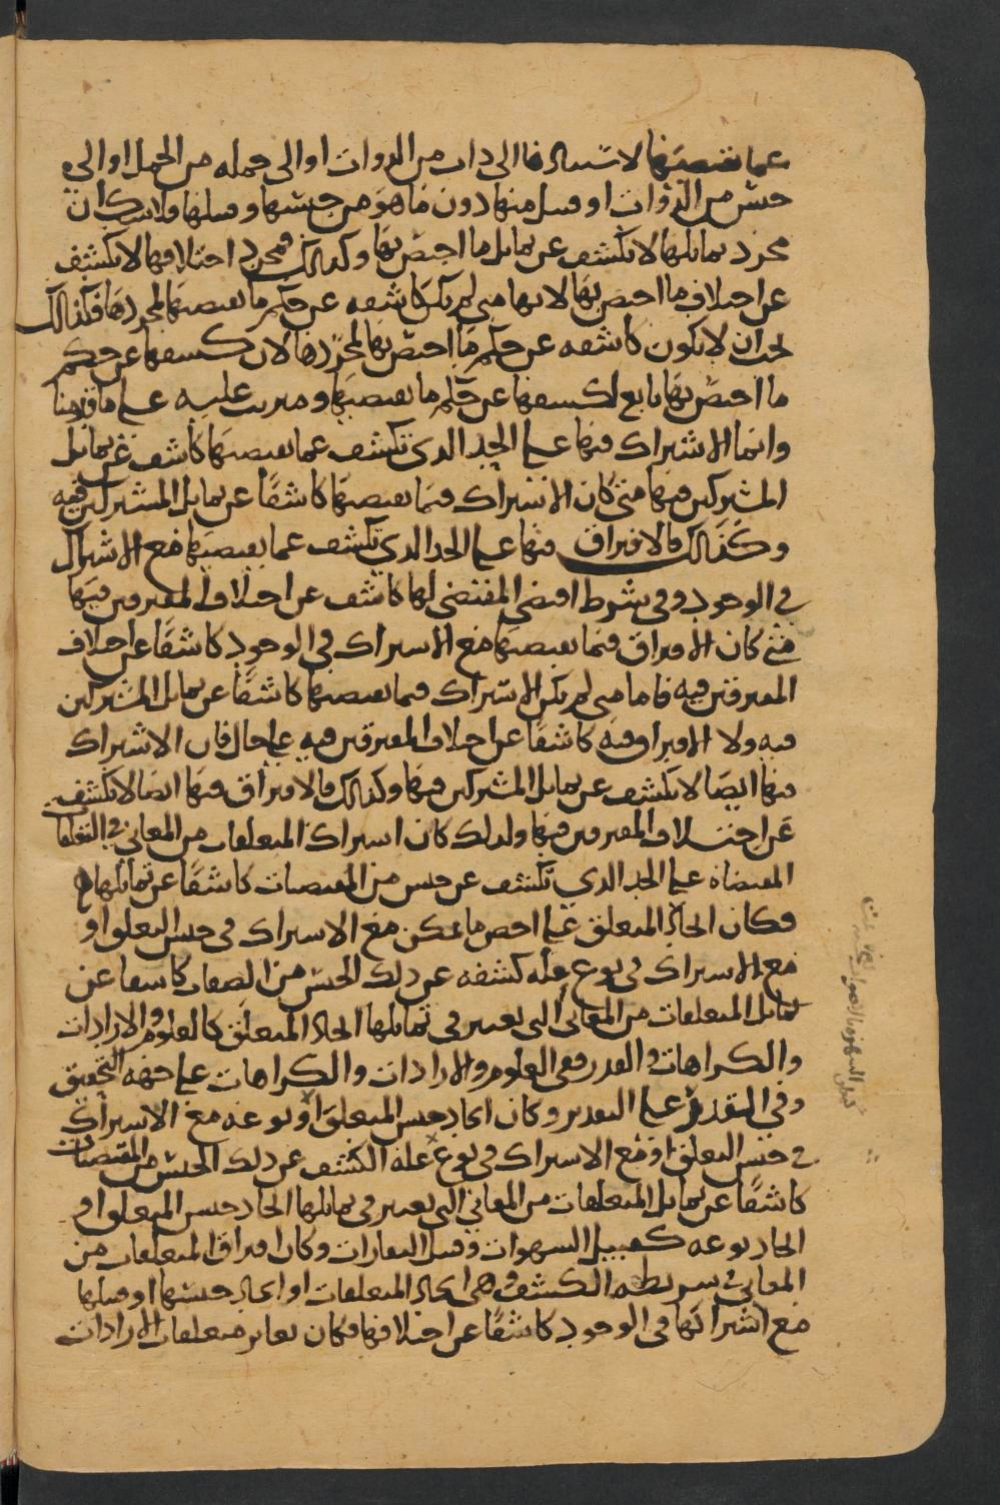 عما تقتضيها لاستنادها الى ذات من الذوات او الى جملة من الجمل او الى
جنس من الذوات او قبيل منها دون ما هو من جنسها وقبيلها ولاشك ان
مجرد تماثلها لا تكشف عن تماثل ما اختص بها وكذلك فمجرد اختلافها لا تكشف
عن اختلاف ما اختص بها لانها متى لم تكن كاشفه عن حكم ما تقتضيها لمجردها فكذلك
يجب ان لا تكون كاشفه عن حكم ما اختص بها لمجردها لان كشفها عن حكم
ما اختص بها تابع لكشفها عن حكم ما تقتضيها ومترتب عليه على ما قدمنا
وانما الاشتراك فيها على الحد الذي تكشف عما تقتضيها كاشف عن تماثل
المشتركين فيها متى كان الاشتراك فيما تقتضيها كاشفًا عن تماثل المشتركين فيه
وكذلك فالافتراق فيها على الحد الذي تكشف عما تقتضيها مع الاشتراك
في الوجود وفي شرط اقتضى المقتضي لها كاشف عن اختلاف المفترقين فيها
متى كان الافتراق فيما تقتضيها مع الاشتراك في الوجود كاشفًا عن اختلاف
المفترقين فيه فاما متى لم يكن الاشتراك فيما تقتضيها كاشفًا عن تماثل المشتركين
فيه ولا الافتراق فيه كاشفًا عن اختلاف المفترقين فيه على حال فان الاشتراك
فيها ايضًا لا يكشف عن تماثل المشتركين فيها وكذلك فالافتراق فيها ايضا لا تكشف
عن اختلاف المفترقين فيها ولذلك كان اشتراك المتعلقات من المعاني في التعلقات
المقتضاة على الحد الذي تكشف عن جنس من المقتضيات كاشفًا عن تماثلها
فكان اتحاد المتعلق على اخص ما يمكن مع الاشتراك في جنس التعلق او
مع الاشتراك في نوع علة كشفه عن ذلك الجنس من الصفات كاشفا عن
تماثل المتعلقات من المعاني التي يعتبر في تماثلها اتحاد المتعلق كالعلوم والارادات
والكراهات والقدر ففي العلوم والارادات والكراهات على جهة التحقيق
وفي القدر على التقدير وكان اتحاد جنس المتعلق او نوعه مع الاشتراك
في جنس التعلق او مع الاشتراك في نوع علة الكشف عن ذلك الجنس من المقتضيات
كاشفًا عن تماثل المتعلقات من المعاني التي يعتبر في تماثلها اتحاد جنس المتعلق او
اتحاد نوعه كقبيل الشهوات وقبيل النفارات وكان افتراق المتعلقات من
المعاني في شريطة الكشف وهي اتحاد المتعلقات او اتحاد جنسها او قبيلها
مع اشتراكها في الوجود كاشفًا عن اختلافها فكان تغاير متعلقات الارادات